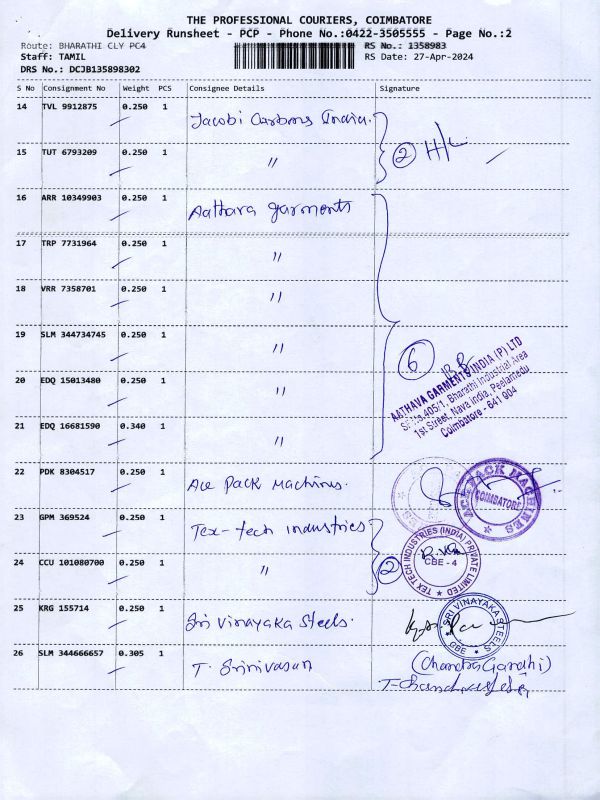 THE PROFESSIONAL COURIERS, COIMBATORE
Delivery Runsheet - PCP - Phone No.:0422-3505555 - Page No.:2
Route: BHARATHI CLY PC4 RS No.: 1358983
Staff: TAMIL RS Date: 27-Apr-2024
DRS No.: DCJB135898302
S No Consignment No Weight PCS Consignee Details Signature
14 TVL 9912875 0.250 1 Jacobi Carbons India.
15 TUT 6793209 0.250 1 〃 2 H/L
16 ARR 10349903 0.250 1 Aathava garments
17 TRP 7731964 0.250 1 〃
18 VRR 7358701 0.250 1 〃
19 SLM 344734745 0.250 1 〃
6
AATHAVA GARMENTS INDIA (P) LTD
SF.No.405/1, Bharathi Industrial Area
1st Street, Nava India, Peelamedu
Coimbatore - 641 004
20 EDQ 15013480 0.250 1 〃
21 EDQ 16681590 0.340 1 〃
22 PDK 8304517 0.250 1 Ace Pack Machines.
ACE PACK MACHINES
COIMBATORE
23 GPM 369524 0.250 1 Tex-tech industries
24 CCU 101080700 0.250 1 〃 2
TEX TECH INDUSTRIES (INDIA) PRIVATE LIMITED
CBE - 4
25 KRG 155714 0.250 1 Sri Vinayaka Steels.
SRI VINAYAKA STEELS
CBE
26 SLM 344666657 0.305 1 T. Srinivasan
(Chandra Gandhi)